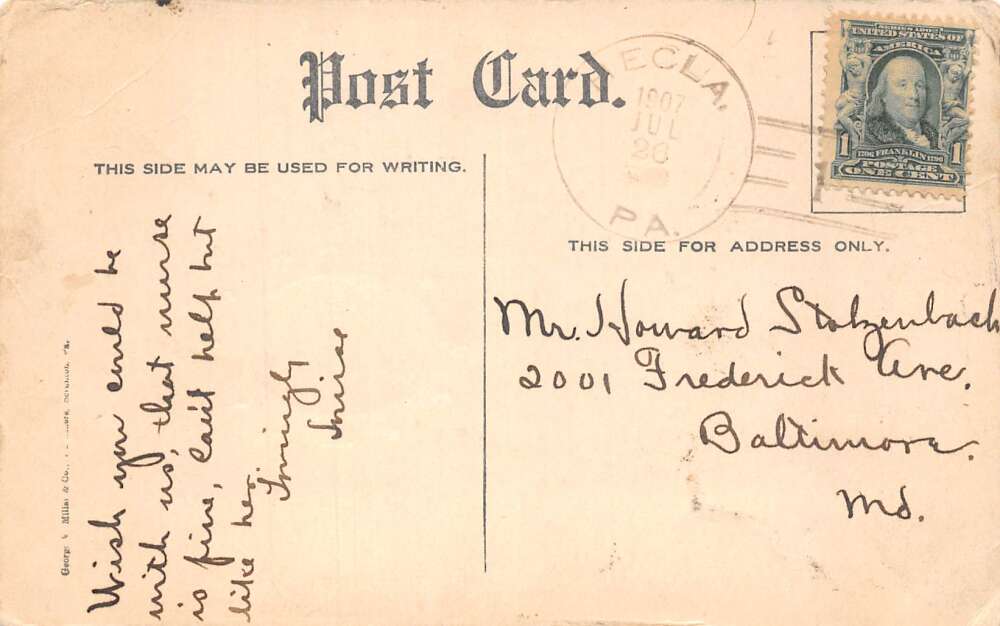 Post Card.
THIS SIDE MAY BE USED FOR WRITING.
THIS SIDE FOR ADDRESS ONLY.
TECLA.
1907
JUL
26
PA.
SERIES 1902
UNITED STATES OF
AMERICA
1706 FRANKLIN 1790
POSTAGE
1 ONE CENT 1
Mr. Howard Stolzenbach
2001 Frederick Ave.
Baltimore.
Md.
Wish you could be
with us, that nurse
is fine, can't help but
like her.
Lovingly
Louise
Millar & Co.,